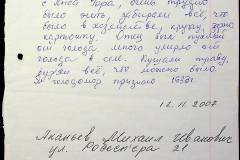 с Яков Гора, очень трудно
было жить, забирали всё, что
было в хозяйстве, крупу, зерно
картошку. Отец был пухлый
от голода, много умерло от
голода в селе. Кушали траву,
всё, что можно было.
голодомор признаю 1933г.
12.11.2007
Ананьев Михаил Иванович
ул. Робеспьера 21